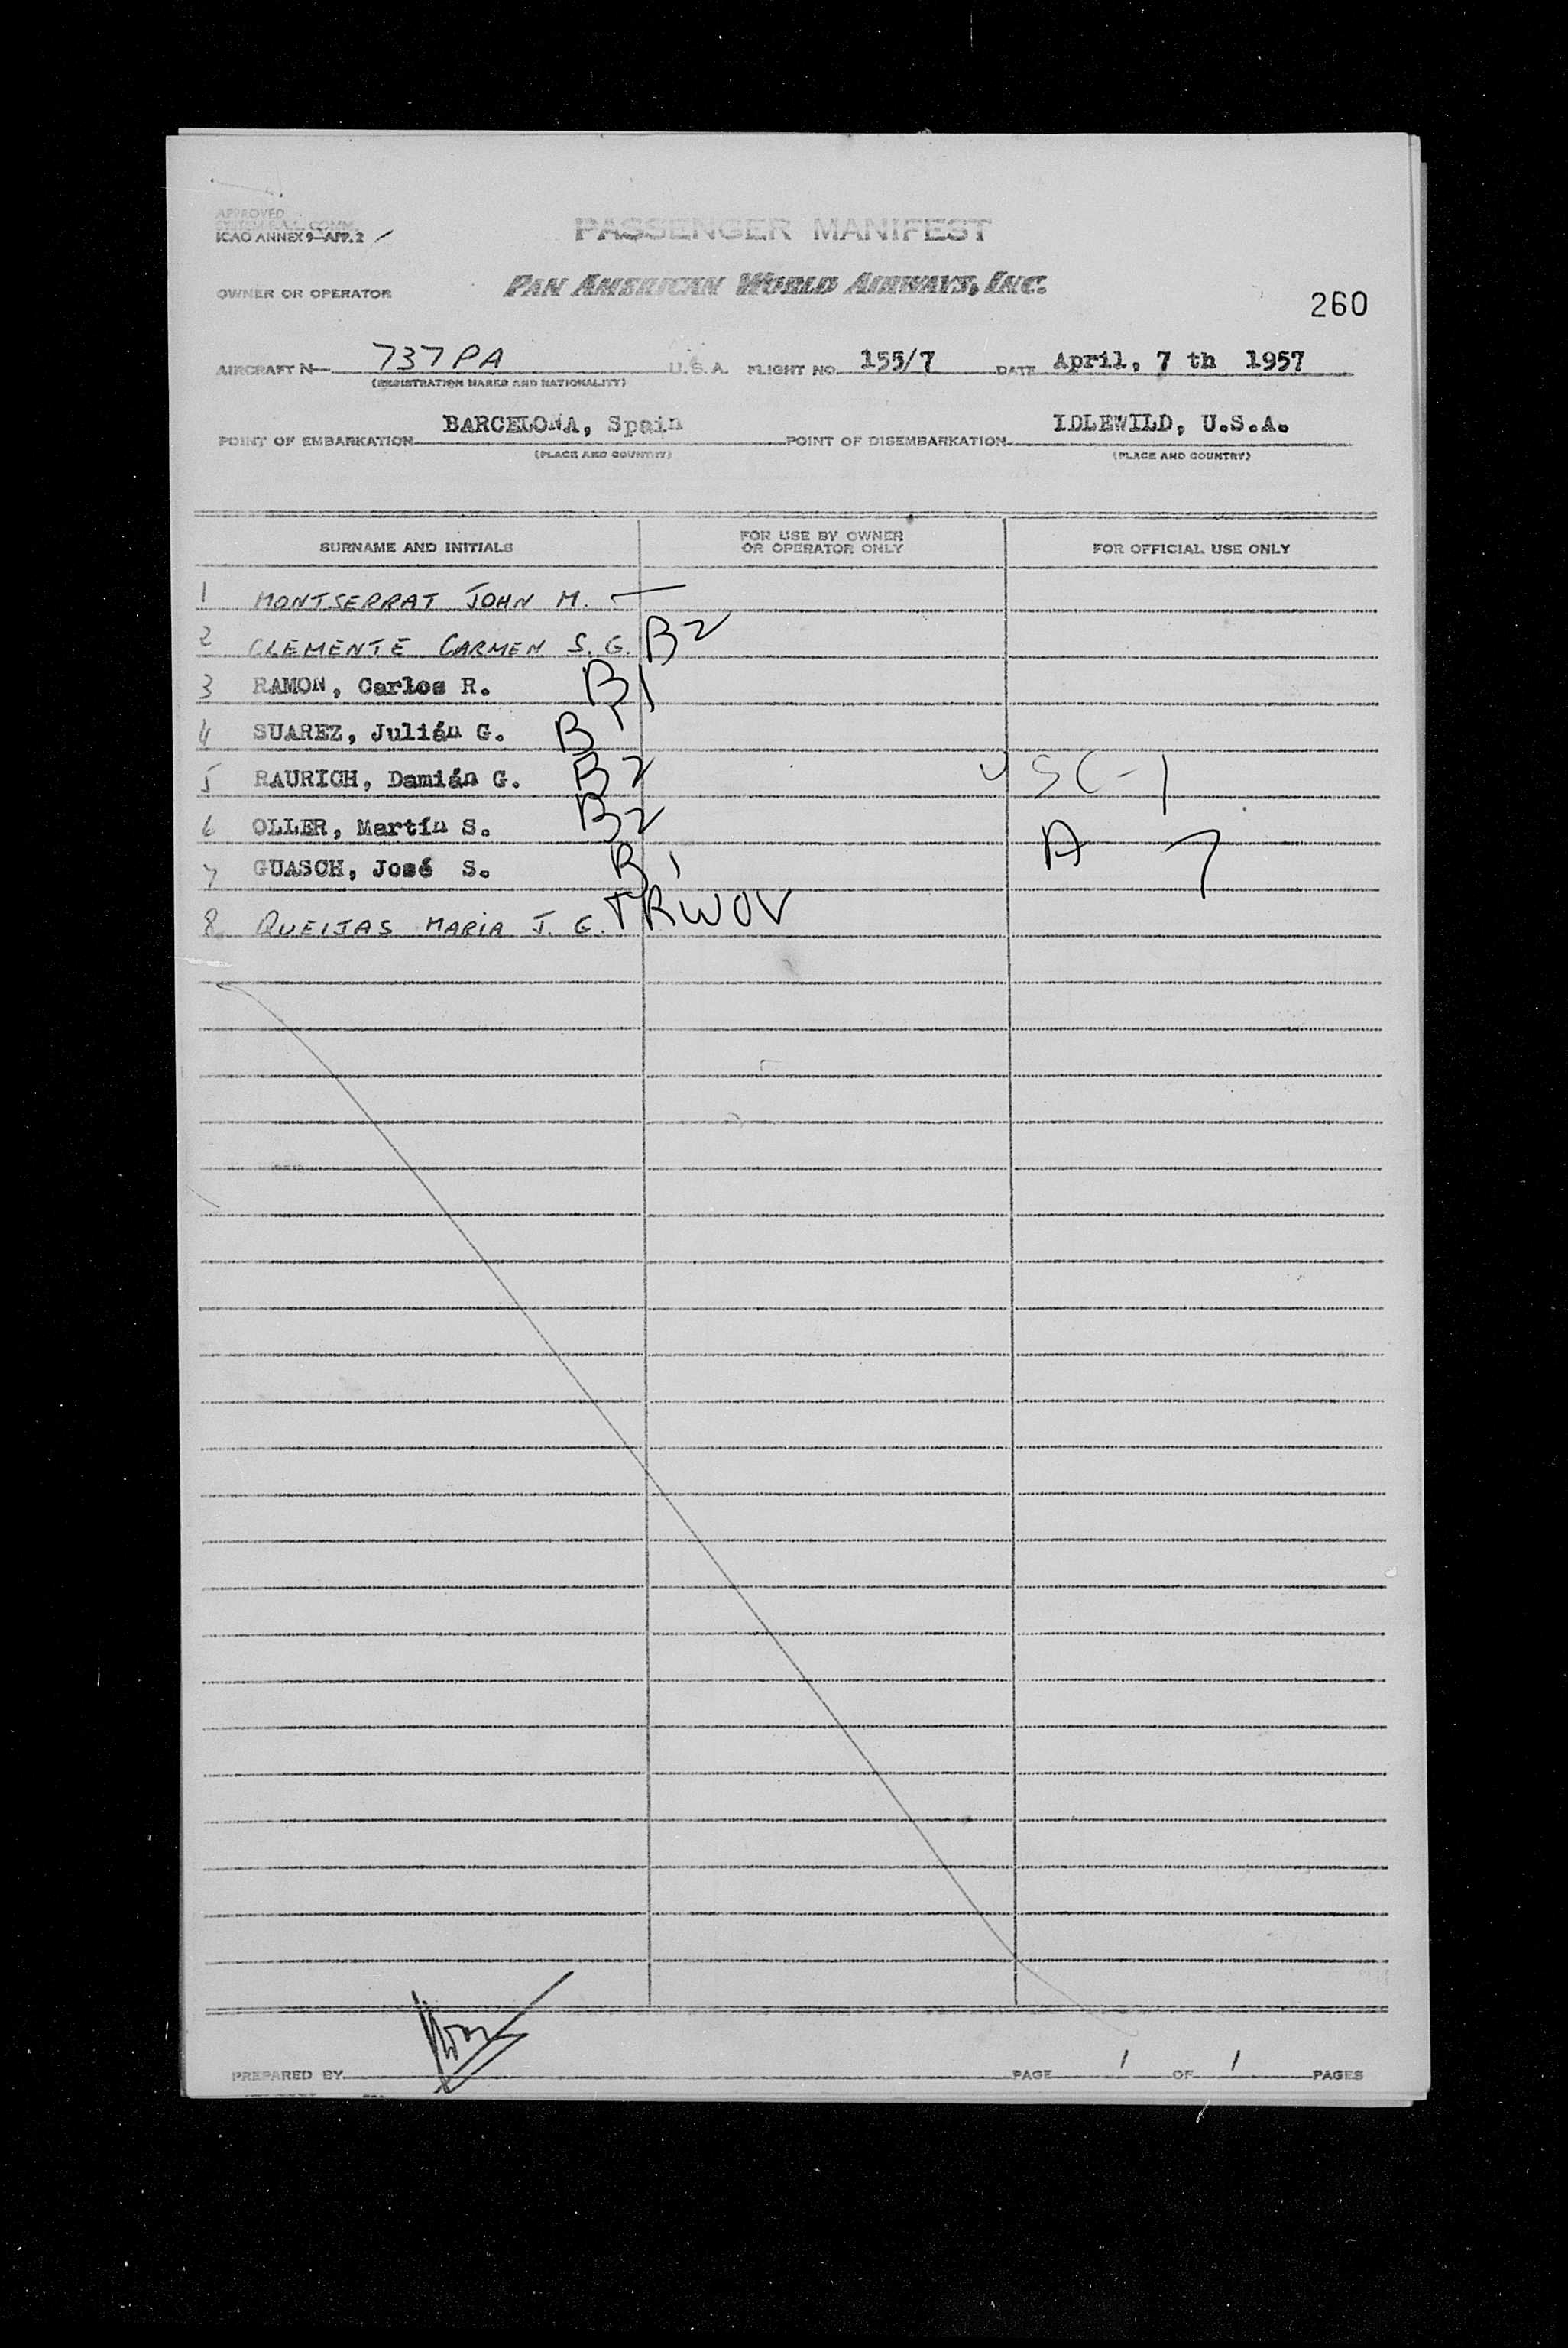 APPROVED
ICAO ANNEX 9-APP. 2
PASSENGER MANIFEST
OWNER OR OPERATOR PAN AMERICAN WORLD AIRWAYS, INC.
260
AIRCRAFT N- 737PA U.S.A. FLIGHT NO. 155/7 DATE April, 7 th 1957
(REGISTRATION MARKS AND NATIONALITY)
POINT OF EMBARKATION BARCELONA, Spain POINT OF DISEMBARKATION IDLEWILD, U.S.A.
(PLACE AND COUNTRY) (PLACE AND COUNTRY)
SURNAME AND INITIALS FOR USE BY OWNER OR OPERATOR ONLY FOR OFFICIAL USE ONLY
1 MONTSERRAT JOHN M. —
2 CLEMENTE CARMEN S. G. B2
3 RAMON, Carlos R. B1
4 SUAREZ, Julián G. B1
5 RAURICH, Damián G. B2 USC-1
6 OLLER, Martín S. B2 A 7
7 GUASCH, José S. B1
8 QUEIJAS MARIA J. G. TRWOV
PREPARED BY PAGE 1 OF 1 PAGES